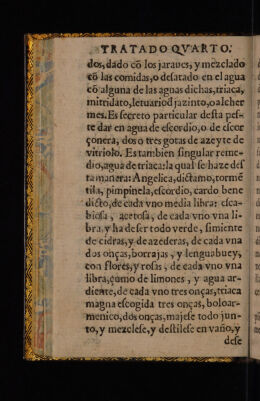 TRATADO QVARTO.
dos, dado cõ los jaraues, y mezclado
cõ las comidas, o desatado en el agua
cõ alguna de las aguas dichas, triaca,
mitridato, letuario d̃ jazinto, o alcher
mes. Es secreto particular desta pes-
te dar en agua de escordio, o de escor
çonera, dos o tres gotas de azeyte de
vitriolo. Es tambien singular reme-
dio, agua de triaca: la qual se haze desta
ta manera: Angelica, dictamo, tormẽ
tila, pimpinela, escordio, cardo bene
dicto, de cada vno media libra: esca-
biosa, acetosa, de cada vno vna li-
bra, y ha de ser todo verde, simiente
de cidras, y de azederas, de cada vna
dos onças, borrajas, y lenguabuey,
con flores, y rosas, de cada vno vna
libra, çumo de limones, y agua ar-
diente, de cada vno tres onças, triaca
magna escogida tres onças, boloar-
menico, dos onças, majese todo jun-
to, y mezclese, y destilese en vaño, y
dese